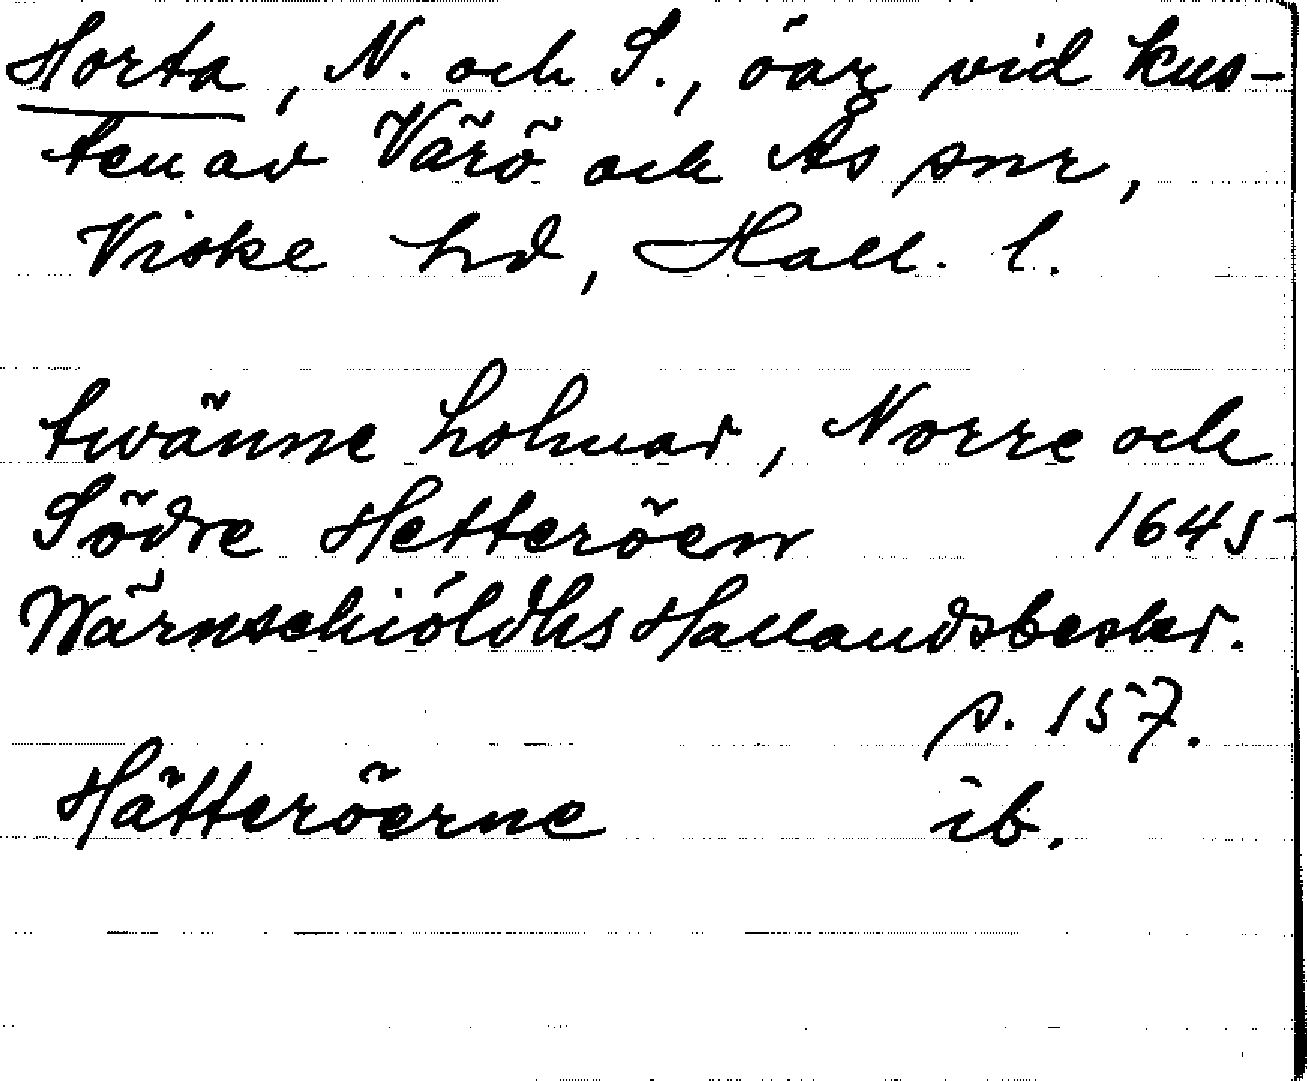 Horta, N. och S., öar vid kus-
ten av Värö och Ås snr,
Viske hd, Hall. l.
twänne holmar, Norre och
Södre Hetteröen 1645
Wärnschiöldhs Hallandsbeskr.
s. 157.
Hätteröerne ib.